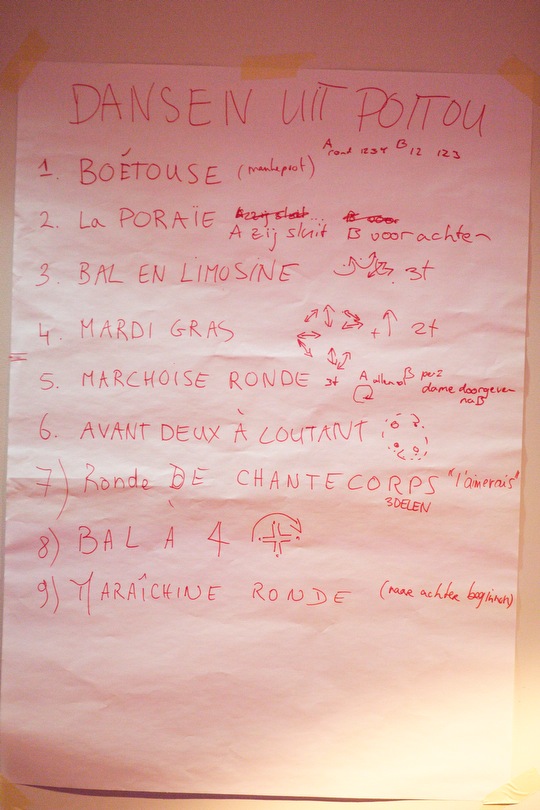 DANSEN UIT POITOU
A rond 1234 B 12 123
1. BOÉTOUSE (manteprot)
2. La PORAÏE A zij sluit... B voor
A zij sluit B voor achter
3. BAL EN LIMOSINE 3t
4. MARDI GRAS + 2t
5. MARCHOISE RONDE 3t A allemaal B per 2
dame doorgeven
na B
6. AVANT DEUX À LOUTANT
7) Ronde DE CHANTECORPS "l'aimerais"
3 DELEN
8) BAL À 4
9) MARAÎCHINE RONDE (naar achter beginnen)